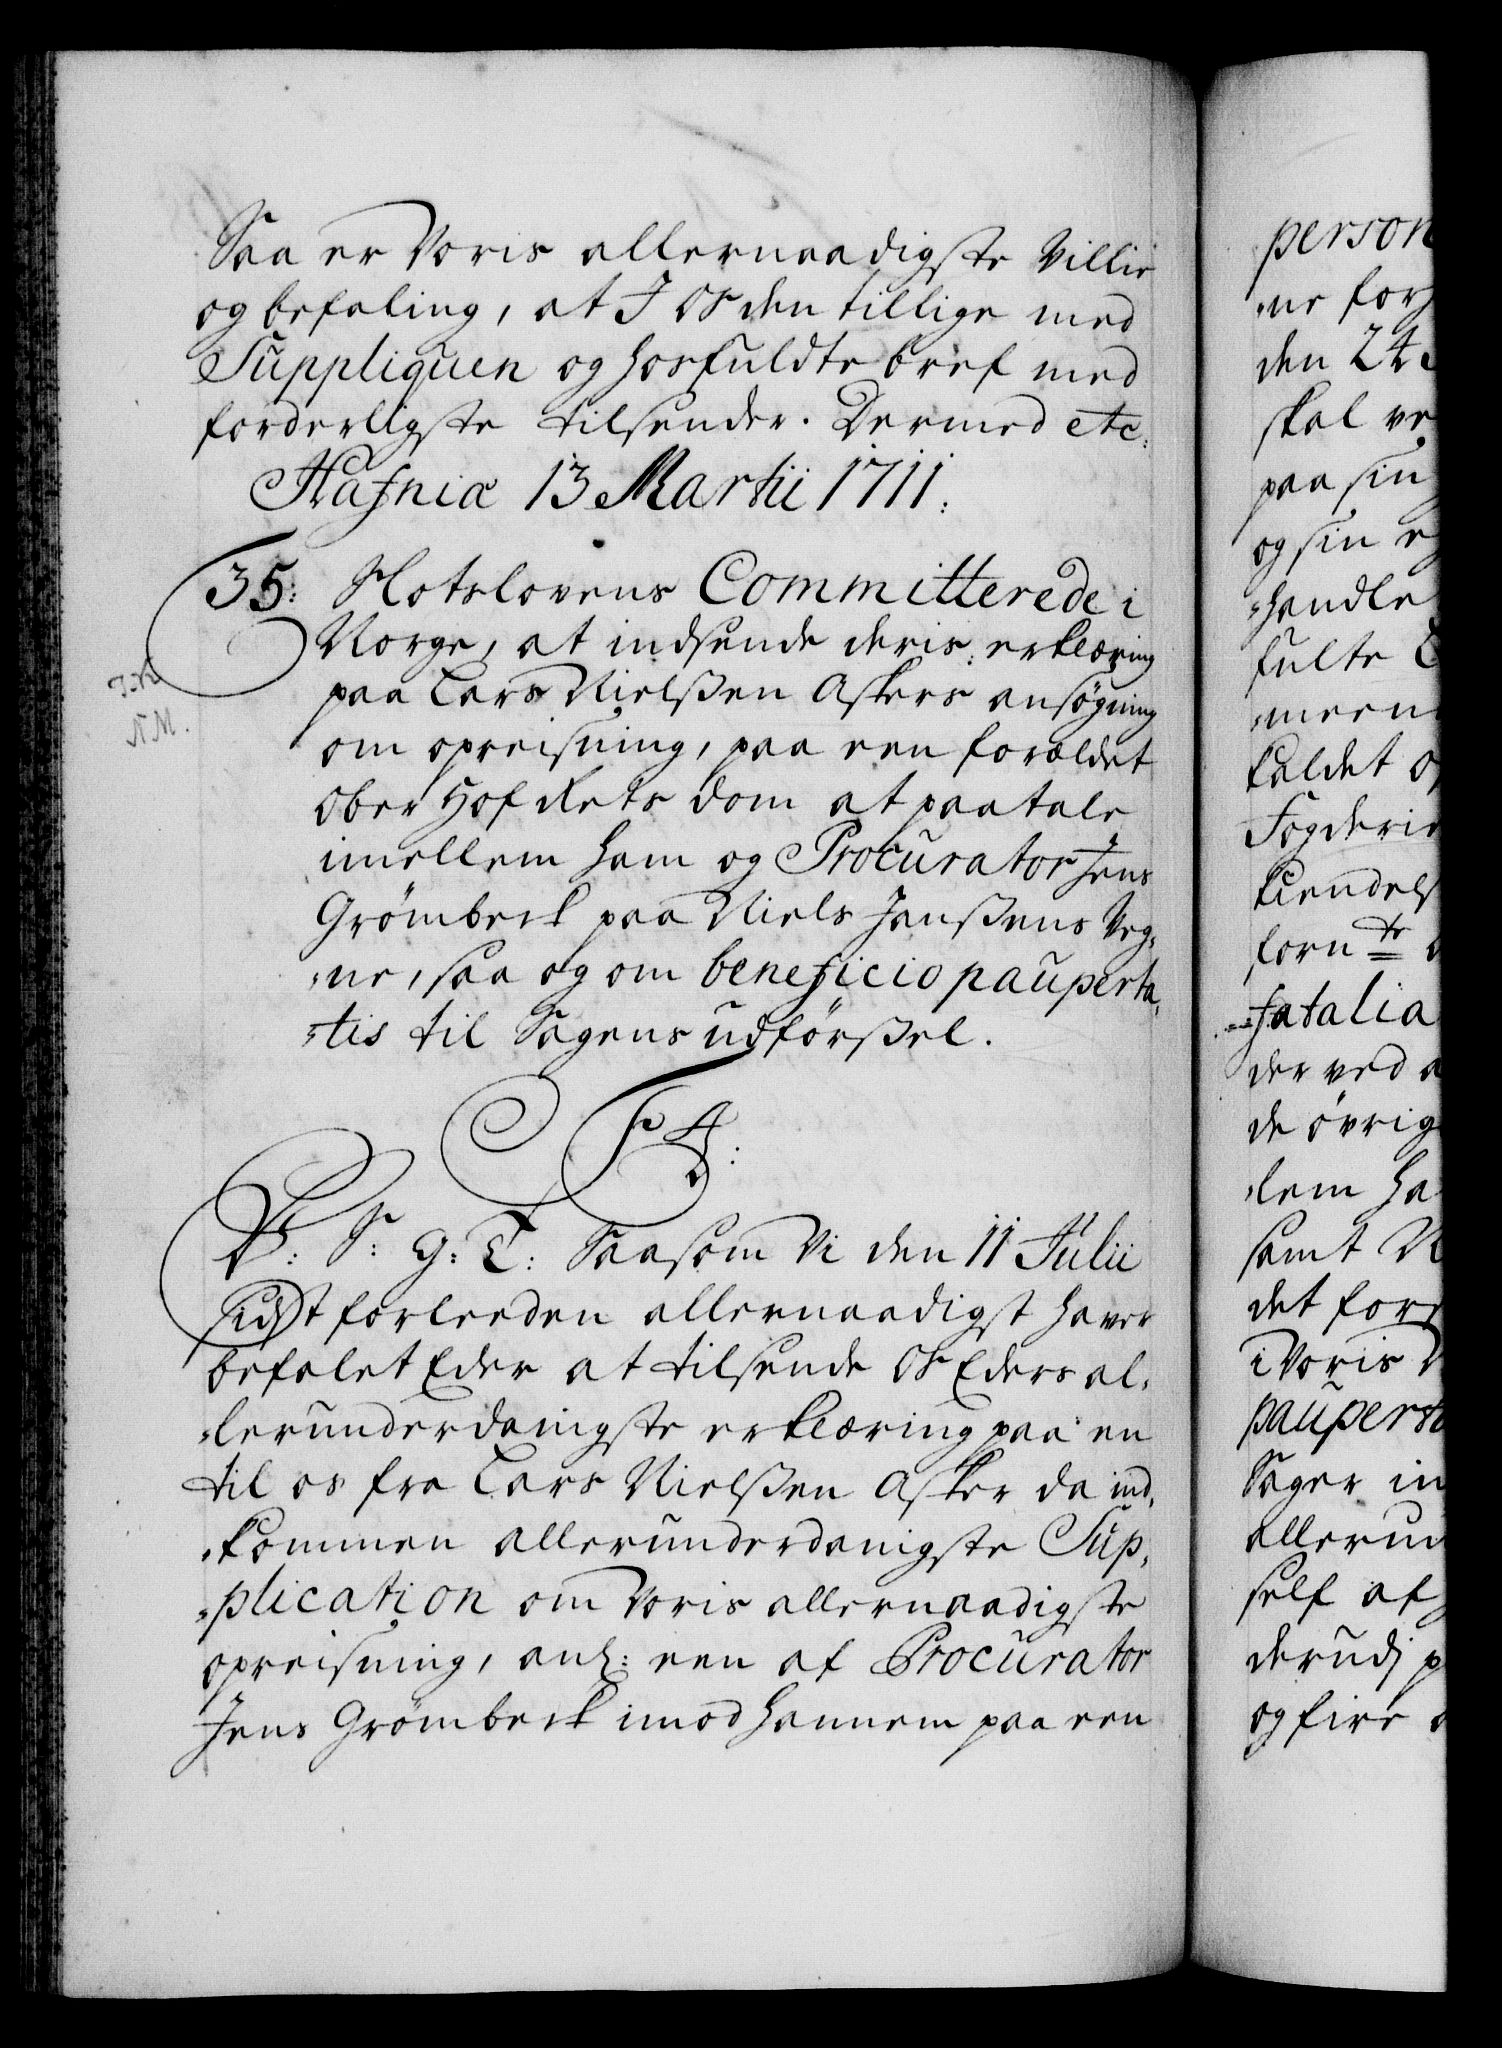 Saa er Voris allernaadigste Villie
og befaling, at I Os den tillige med
Suppliquen og hosfuldte bref med
forderligste tilsender. Dermed etc:
Hafniæ 13 Martii 1711:
35: Slotslovens Committerede i
Norge, at indsende deris erklæring
paa Lars Nielsßen Askers ansøgning
om opreisning, paa een forældet
Ober Hof Rets dom at paatale
imellem ham og Procurator Jens
Grömbeck paa Niels Janßens Veg,
,ne, saa og om beneficio pauperta,
,,tis til Sagens udførßel.
F 4
V: S: G: T: Saasom Vi den 11 Julii
sidst forleeden allernaadigst haver
befalet Eder at tilsende Os Eders al,
,,lerunderdanigste erklæring paa en
til os fra Lars Nielsßen Asker da ind,
,,kommen allerunderdanigste Sup,
,,plication om Voris allernaadigste
opreisning, anl: een af Procurator
Jens Grömbeck imod hannem paa een
person
,ne for
den 24
skal ve
paa sin
og sin e
,handle
fulte
,meen
kaldet o
Fogderie
kiendels
forn te
,,fatalia
der ved a
de øvrig
,lem ha
samt N
det for
i Voris
pauperta
Sager in
allerun
self af
derudj p
og fire